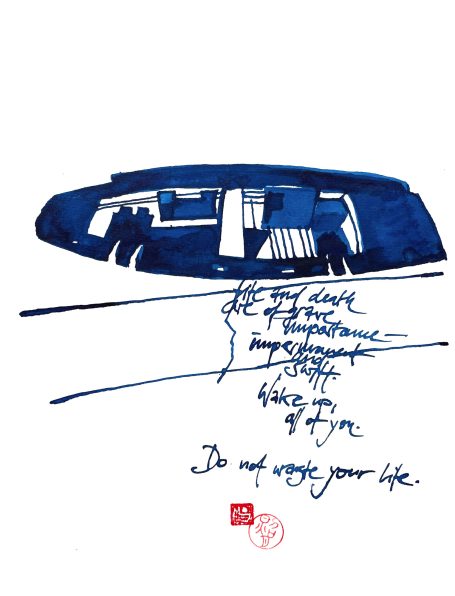 Life and death
are of grave
importance—
impermanent
and
swift.
Wake up,
all of you.
Do not waste your life.